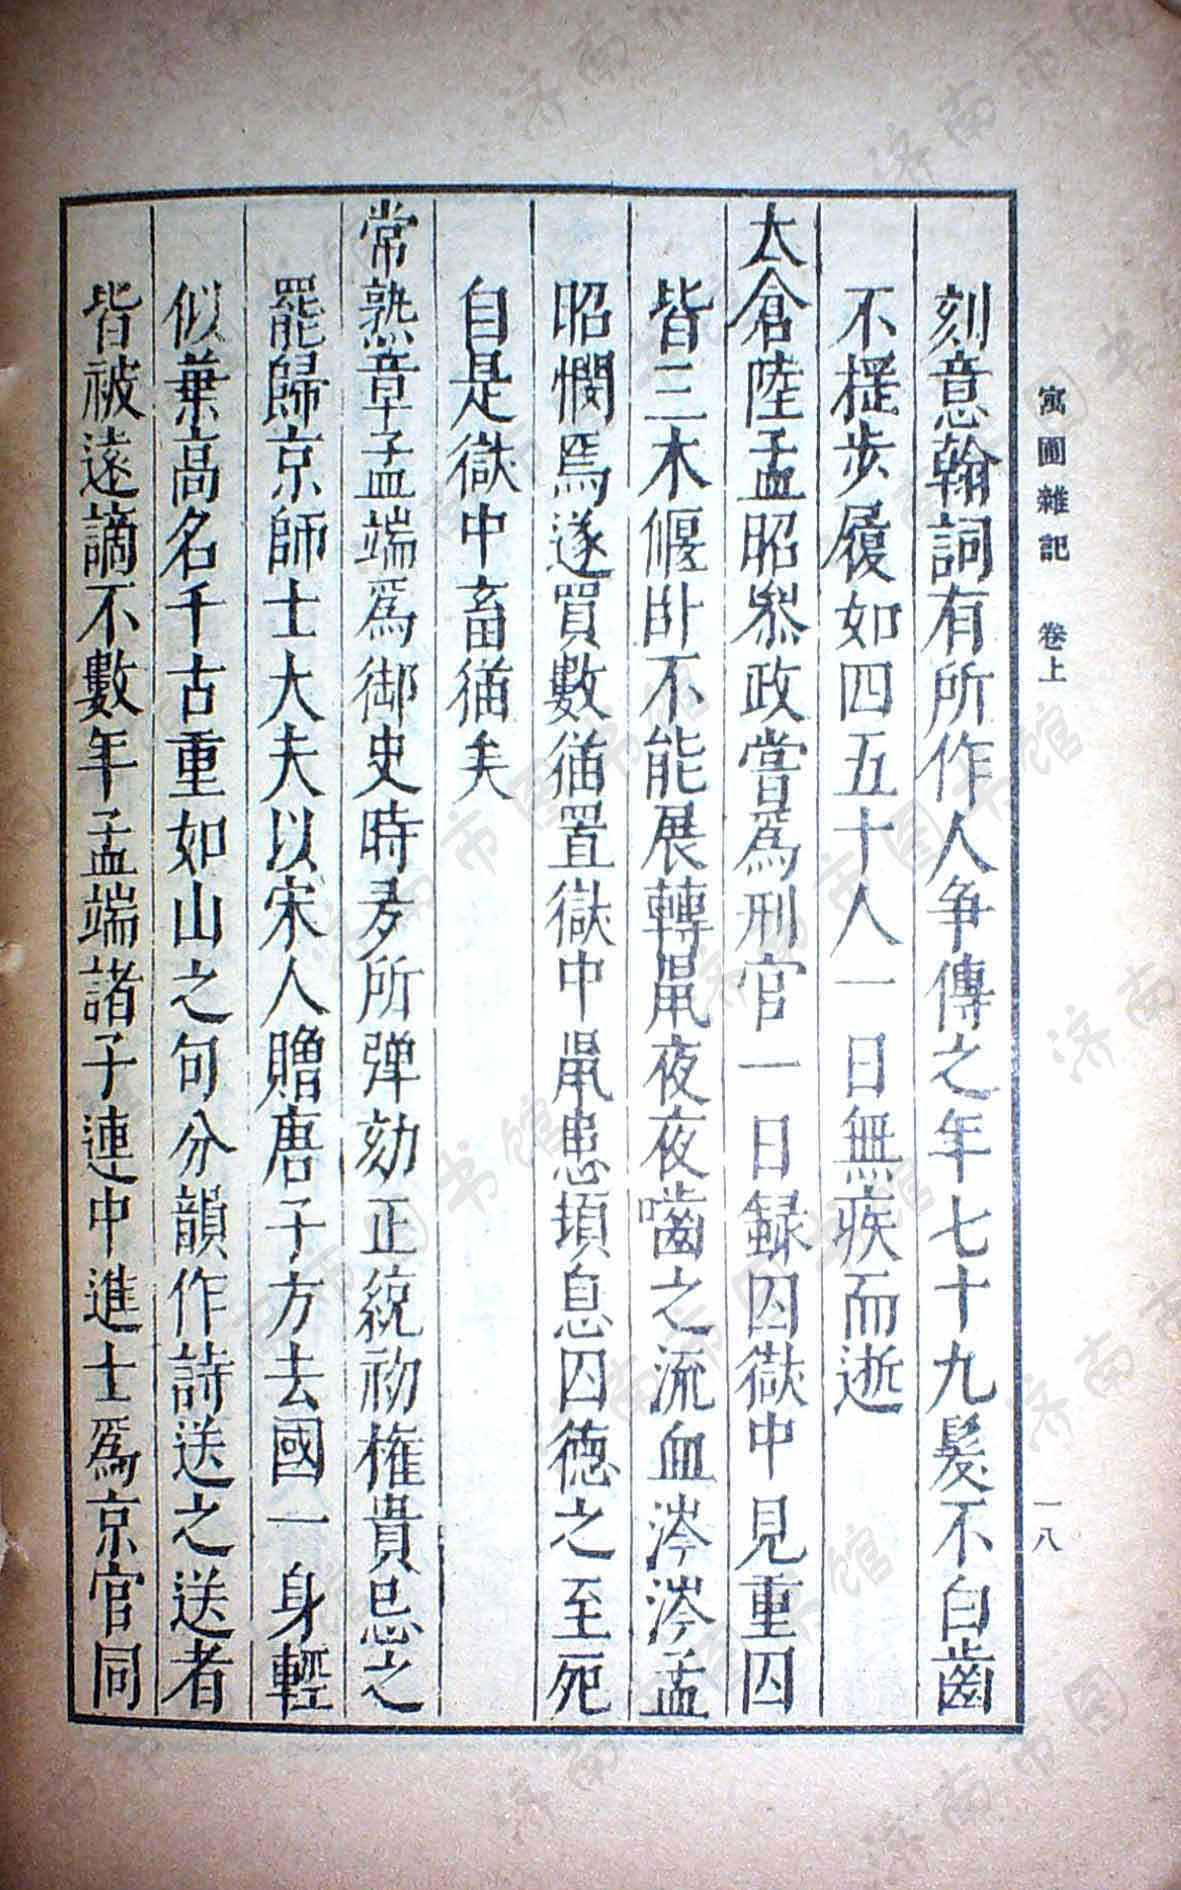 寓圃雜記　卷上
一八
刻意翰詞有所作人爭傳之年七十九髮不白齒
不搖步履如四五十人一日無疾而逝
太倉陸孟昭叅政嘗爲刑官一日錄囚獄中見重囚
皆三木偃卧不能展轉鼠夜夜嚙之流血涔涔孟
昭憫焉遂買數猫置獄中鼠患頓息囚德之至死
自是獄中畜猫矣
常熟章孟端爲御史時多所弹劾正統初權貴忌之
罷歸京師士大夫以宋人贈唐子方去國一身輕
似葉高名千古重如山之句分韻作詩送之送者
皆被遠謫不數年孟端諸子連中進士爲京官同
济南市图书馆